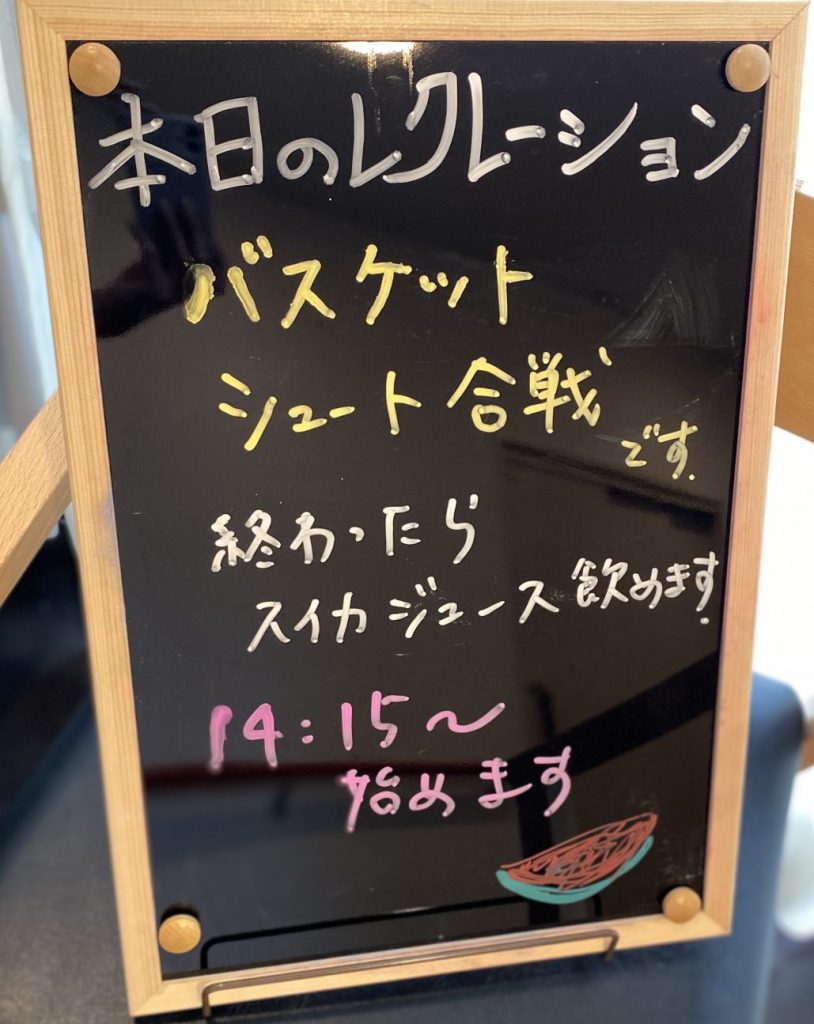 本日のレクレーション
バスケット
シュート合戦
です.
終わったら
スイカジュース飲めます.
14:15～
始めます